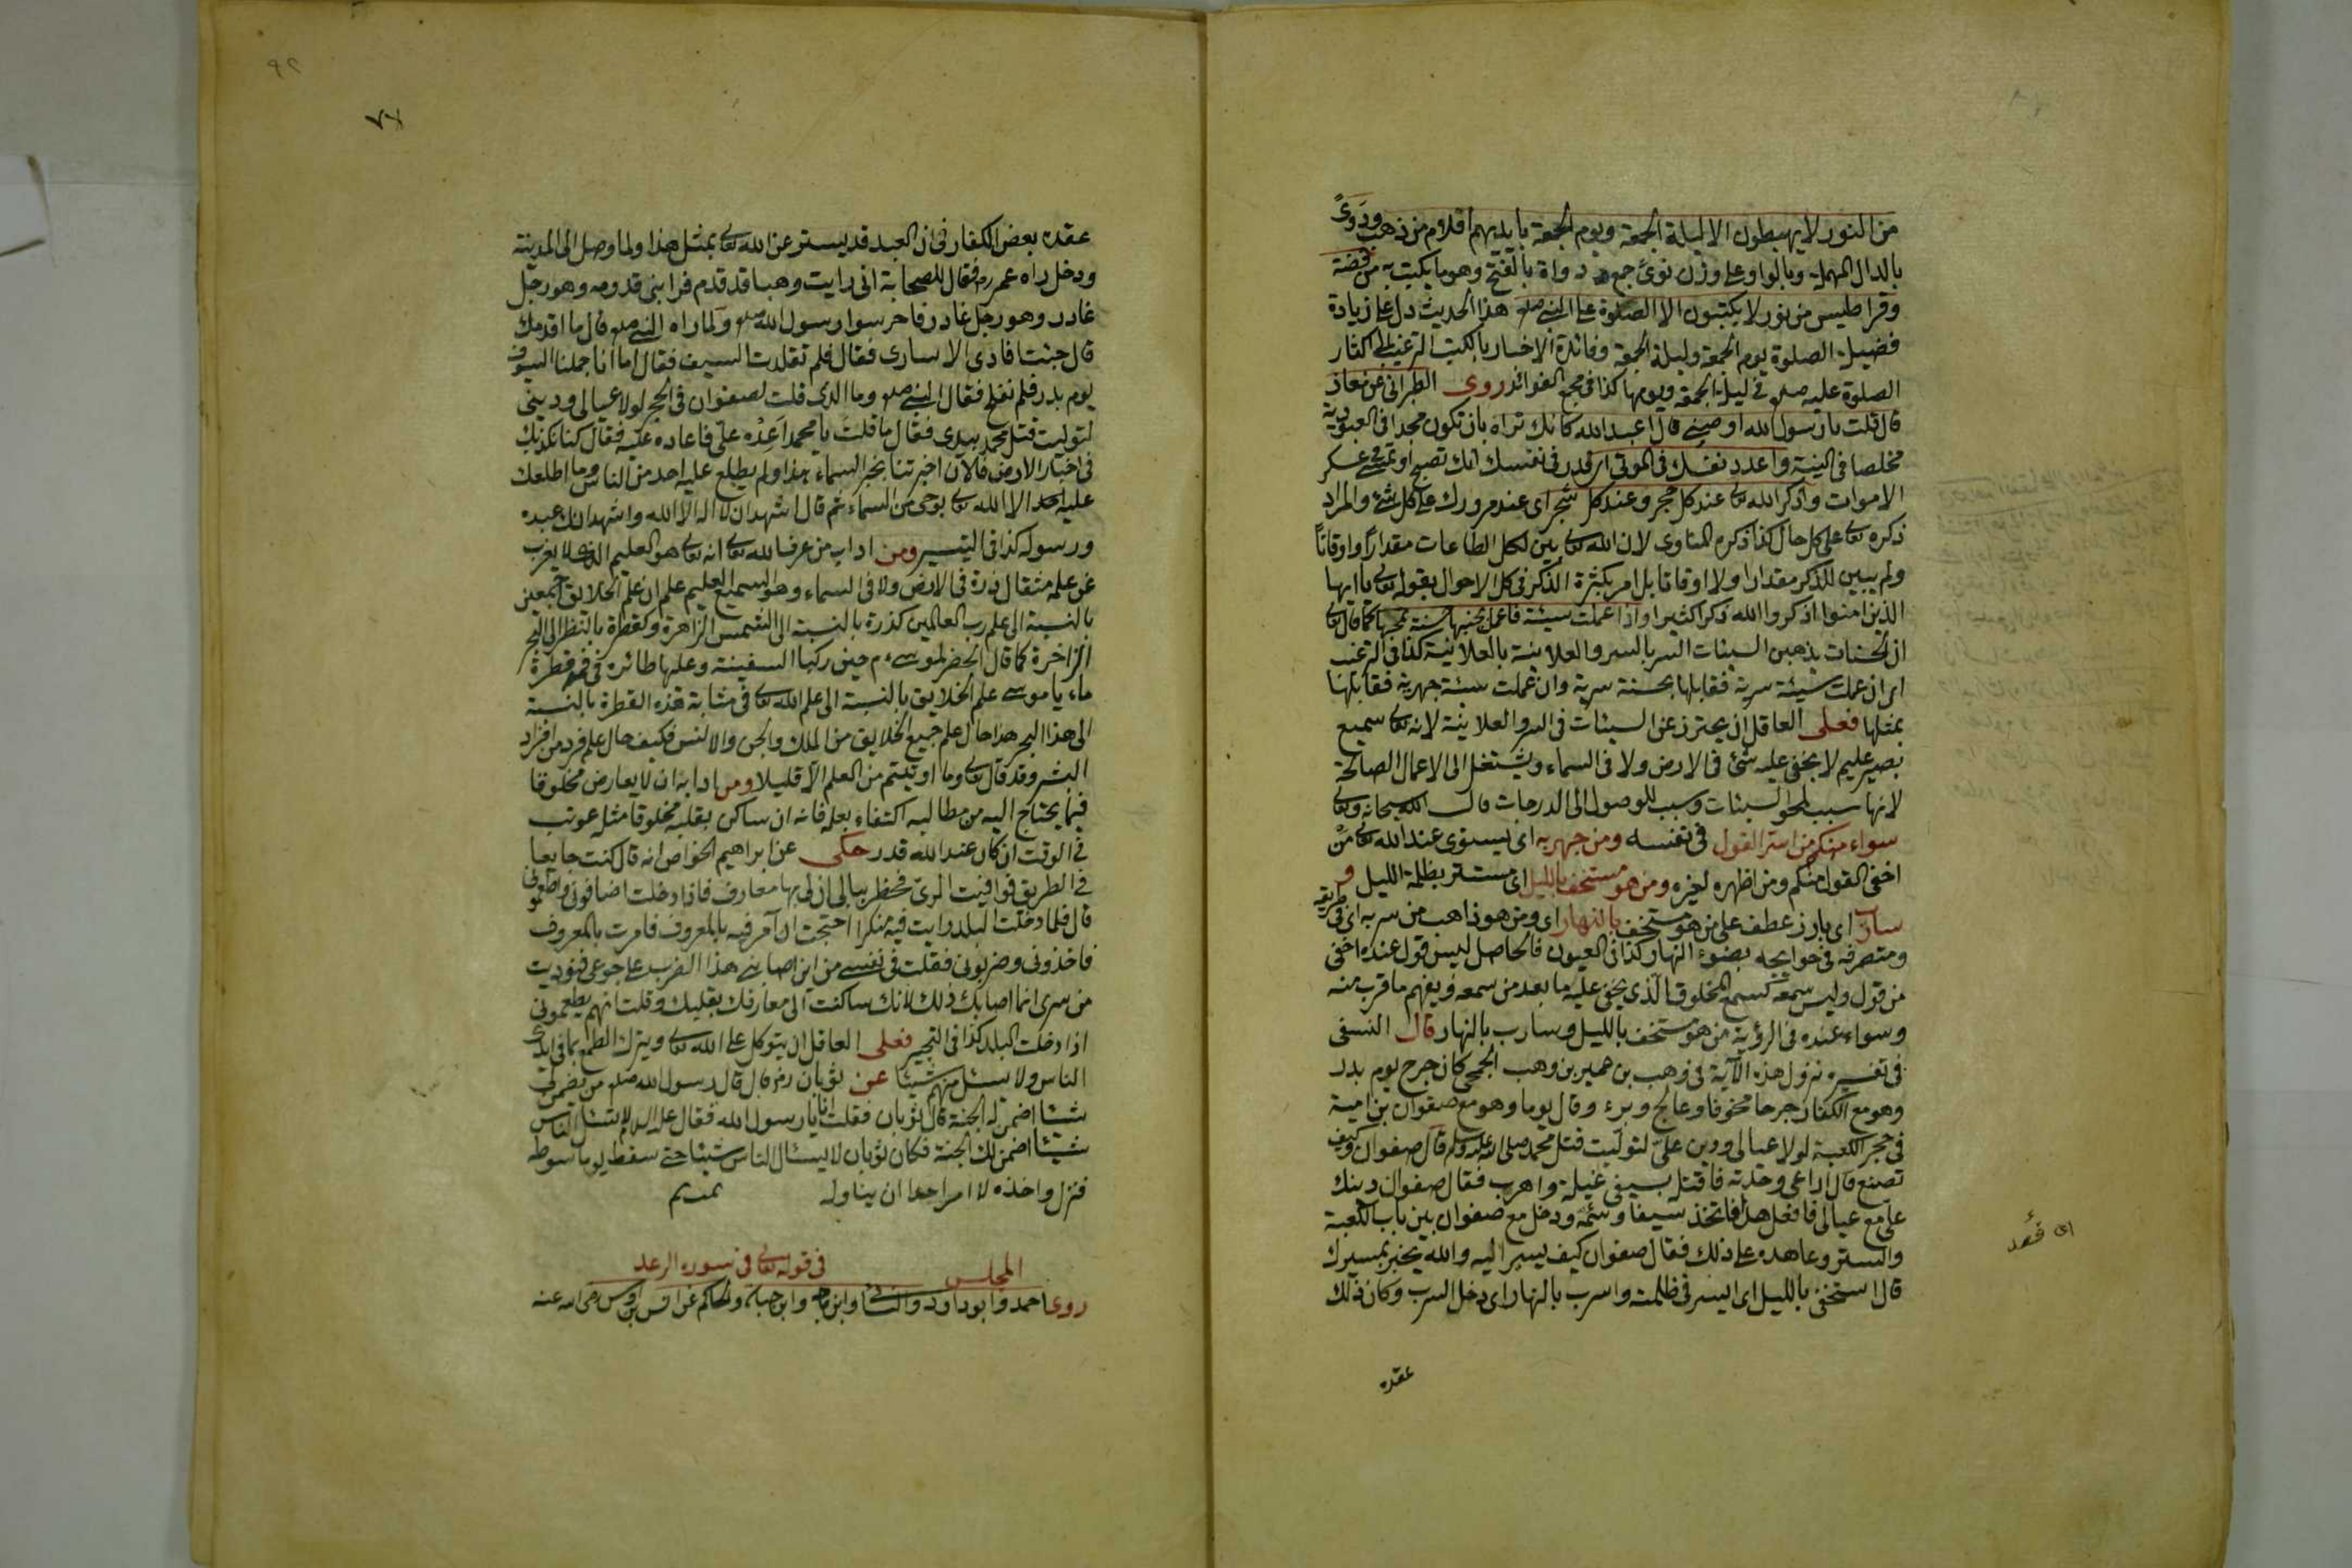 من النور لا يهبطون الا ليلة الجمعة ويوم الجمعة بايديهم اقلام من ذهب ودوىً
بالدال المهملة وبالواو على وزن نوىً جمع دواة بالفتح وهو ما يكتب به من فضة
وقراطيس من نور لا يكتبون الا الصلوة على النبي صلعم هذا الحديث دل على زيادة
فضيلة الصلوة يوم الجمعة وليلة الجمعة وفائدة الاخبار بالكتب الترغيب الى اكثار
الصلوة عليه صلعم في ليلة الجمعة ويومها كذا في مجمع الفوائد روى الطبراني عن معاذ
قال قلت يا رسول الله اوصني قال اعبد الله كانك تراه بان تكون مجدا في العبودية
مخلصا في النية واعدد نفسك في الموتى اى قدر في نفسك انك تصبح او تمسى في عسكر
الاموات واذكر الله تعالى عند كل حجر وعند كل شجر اى عند مرورك على كل شئ والمراد
ذكره تعالى على كل حال كذا ذكره المناوى لان الله تعالى بين لكل الطاعات مقداراً واوقاتاً
ولم يبين للذكر مقدارا ولا اوقاتا بل امر بكثرة الذكر في كل الاحوال بقوله تعالى يا ايها
الذين امنوا اذكروا الله ذكرا كثيرا واذا عملت سيئة فاعمل بجنبها حسنة تمحها كما قال تعالى
ان الحسنات يذهبن السيئات السر بالسر والعلانية بالعلانية كذا في الترغيب
اى ان عملت سيئة سرية فقابلها بحسنة سرية وان عملت سيئة جهرية فقابلها
بمثلها فعلى العاقل ان يحترز عن السيئات في السر والعلانية لانه تعالى سميع
بصير عليم لا يخفى عليه شئ في الارض ولا في السماء ويشتغل الى الاعمال الصالحة
لانها سبب لمحو السيئات وسبب للوصول الى الدرجات قال الله سبحانه وتعالى
سواء منكم من اسر القول في نفسه ومن جهر به اى يستوى عند الله تعالى من
اخفى القول منكم ومن اظهره لغيره ومن هو مستخف بالليل اى مستتر بظلمة الليل و
سارب اى بارز عطف على من هو مستخف بالنهار اى ومن هو ذاهب من سربه اى في طريقه
ومتصرفه في حوايجه بضوء النهار كذا في العيون فالحاصل ليس قول عنده اخفى
من قول وليس سمعه كسمع المخلوق الذى يخفى عليه ما بعد من سمعه ويفهم ما قرب منه
وسواء عنده في الرؤية من هو مستخف بالليل وسارب بالنهار قال النسفى
في تفسيره نزول هذه الآية في وهب بن عمير بن وهب الجمحى كان جرح يوم بدر
وهو مع الكفار جرحا مخوفا وعالج وبرء وقال يوما وهو مع صفوان بن امية
في حجر الكعبة لولا عيالى ودين علىّ لتوليت قتل محمد صلى الله عليه وسلم قال صفوان وكيف
تصنع قال اداعى وحدته فاقتل بسيفى غيلة واهرب فقال صفوان دينك
علىّ مع عيالى فافعل هذا فاتخذ سيفا وسمّه ودخل مع صفوان بين باب الكعبة
والستر وعاهده على ذلك فقال صفوان كيف يسير اليه والله يخبر بمسيرك
قال استخفى بالليل اى اليسر في ظلمته واسرب بالنهار اى دخل السرب وكان ذلك
عقده
عقده بعض الكفار في ان العبد قد يستتر عن الله تعالى بمثل هذا ولما وصل الى المدينة
ودخل راه عمر رض فقال للصحابة انى رايت وهبا قد قدم فرابنى قدومه وهو رجل
غادر وهو رجل غادر فاحرسوا رسول الله صلعم ولما راه النبي صلعم قال ما اقدمك
قال جئت فادى الاسارى فقال فلم تقلدت السيف فقال اما انا حملنا السيوف
يوم بدر فلم نفلح فقال النبي صلعم وما الذى قلت لصفوان في الحجر لولا عيالى ودينى
لتوليت قتل محمد بيدى فقال ما قلت يا محمد اعده علىّ فاعاده عليه فقال كنا نكذبك
في اخبار الارض فالآن اخبرتنا بخبر السماء هذا ولم يطلع عليه احد من الناس وما اطلعك
عليه احد الا الله تعالى بوحى من السماء ثم قال اشهد ان لا اله الا الله واشهد انك عبده
ورسوله كذا في التيسير ومن اداب من عرف الله تعالى انه تعالى هو العليم الذى لا يعزب
عن علمه مثقال ذرة في الارض ولا في السماء وهو السميع العليم علم ان علم الخلايق اجمعين
بالنسبة الى علم رب العالمين كذرة بالنسبة الى الشمس الزاهرة وكقطرة بالنظر الى البحر
الزاخرة كما قال الخضر لموسى عم حين ركبا السفينة وعلها طائره في فمه قطرة
ماء يا موسى علم الخلايق بالنسبة الى علم الله تعالى في مثابة هذه القطرة بالنسبة
الى هذا البحر هذا حال علم جميع الخلايق من الملك والجن والانس فكيف حال علم فرد من افراد
البشر وقد قال تعالى وما اوتيتم من العلم الا قليلا ومن ادابه ان لا يعارض مخلوقا
فيما يحتاج اليه من مطالبه اكتفاء بعلمه فانه ان ساكن بقلبه مخلوقا مثله عوتب
في الوقت ان كان عند الله قدر حكى عن ابراهيم الخواص انه قال كنت جايعا
في الطريق فوافيت الرىّ فخطر ببالى ان لى بها معارف فاذا دخلت اضافونى واطعمونى
قال فلما دخلت البلد رايت فيه منكرا احتجت ان آمر فيه بالمعروف فامرت بالمعروف
فاخذونى وضربونى فقلت في نفسى من اين اصابنى هذا الضرب على جوعى فنوديت
من سرى انما اصابك ذلك لانك ساكنت الى معارفك بقلبك وقلت انهم يطعمونى
اذا دخلت البلد كذا في التحبير فعلى العاقل ان يتوكل على الله تعالى ويترك الطمع بما في ايدى
الناس ولا يسئل منهم شيئا عن ثوبان رض قال قال رسول الله صلعم من يضمن لى
شيئا اضمن له الجنة قال ثوبان فقلت انا يا رسول الله فقال عليه السلام لا تسئل الناس
شيئا اضمن لك الجنة فكان ثوبان لا يسئال الناس شيئا حتى سقط يوما سوطه
فنزل واخذه لا امر احدا ان يناوله تمت م
المجلس في قوله تعالى في سورة الرعد
روى احمد وابو داود والنسائى وابن ماجه وابن حبان والحاكم عن اوس بن اوس رضى الله عنه